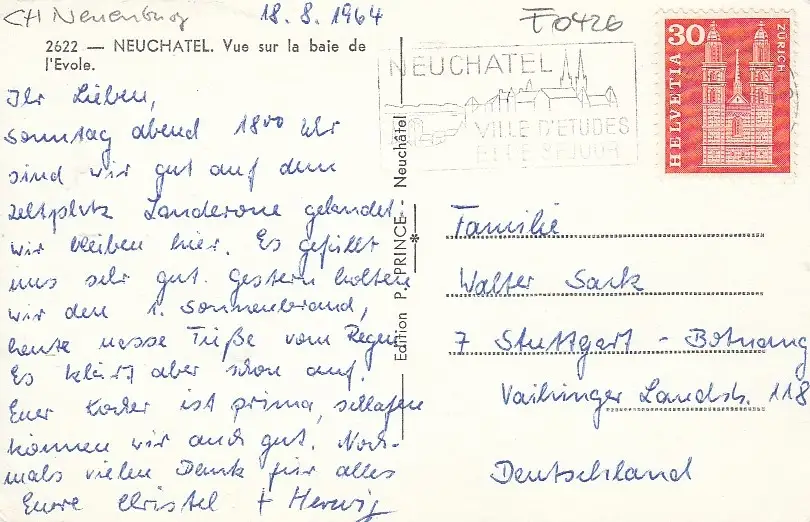 CH Neuenburg
18.8.1964
F0426
2622 — NEUCHATEL. Vue sur la baie de
l'Evole.
NEUCHATEL
VILLE D'ETUDES
ET DE SEJOUR
30
HELVETIA
ZÜRICH
Ihr Lieben,
Sonntag abend 18⁰⁰ Uhr
sind wir gut auf dem
Zeltplatz Landerone gelandet.
Wir bleiben hier. Es gefällt
uns sehr gut. Gestern holten
wir den 1. Sonnenbrand,
heute nasse Füße vom Regen
Es klärt aber schon auf.
Euer Kocher ist prima, schlafen
können wir auch gut. Noch-
mals vielen Dank für alles
Eure Christel + Herwig
Edition P. PRINCE - Neuchâtel
Familie
Walter Sack
7 Stuttgart - Botnang
Vaihinger Landstr. 118
Deutschland